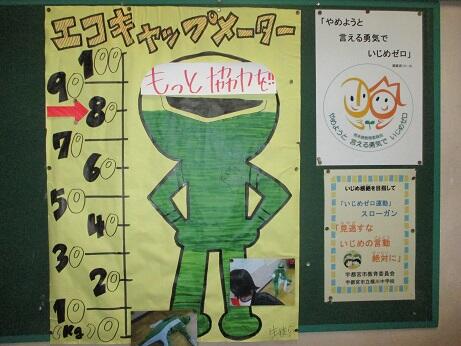 エコキャップメーター
もっと協力を!!
100
90
80
70
60
50
40
30
20
10
(Kg)
0
「やめようと
言える勇気で
いじめゼロ」
やめようと 言える勇気で いじめゼロ
いじめ根絶を目指して
「いじめゼロ運動」
スローガン
「見逃すな
いじめの言動
絶対に」
宇都宮市教育委員会
宇都宮市立横川中学校